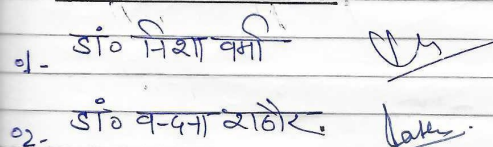 01- डॉ० निशा वर्मा
02- डॉ० वन्दना राठौर.